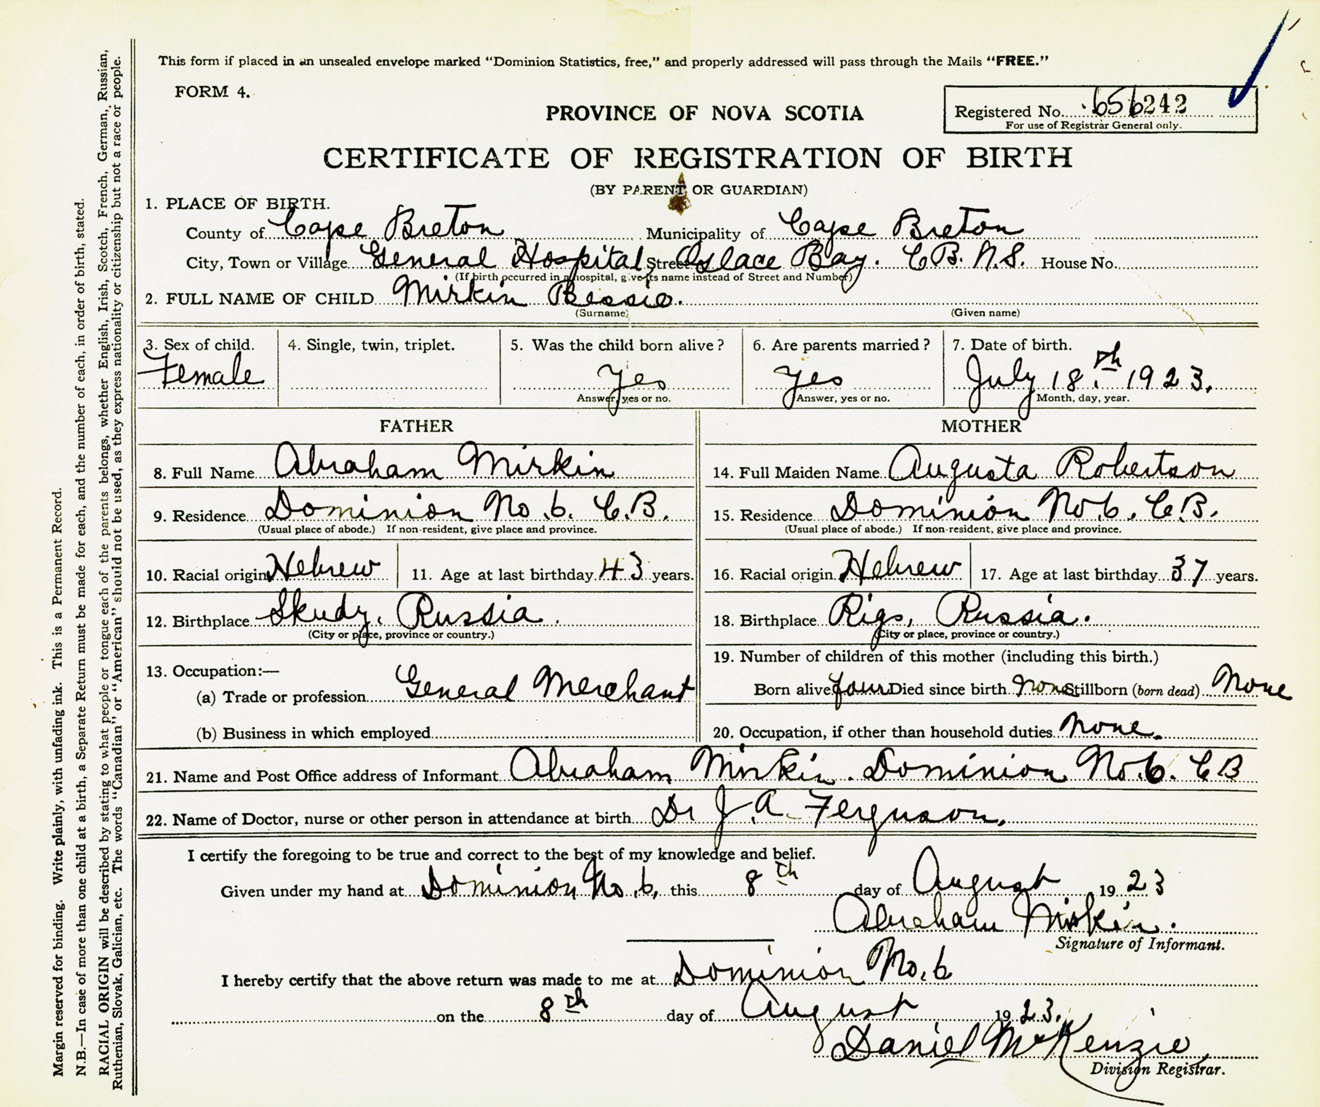 This form if placed in an unsealed envelope marked "Dominion Statistics, free," and properly addressed will pass through the Mails "FREE."
FORM 4.
PROVINCE OF NOVA SCOTIA
Registered No. 656242
For use of Registrar General only.
CERTIFICATE OF REGISTRATION OF BIRTH
(BY PARENT OR GUARDIAN)
1. PLACE OF BIRTH.
County of Cape Breton Municipality of Cape Breton
City, Town or Village General Hospital, Street Glace Bay. C.B. N.S. House No.
(If birth occurred in a hospital, give its name instead of Street and Number)
2. FULL NAME OF CHILD Mirkin Bessie.
(Surname) (Given name)
3. Sex of child. 4. Single, twin, triplet. 5. Was the child born alive? 6. Are parents married? 7. Date of birth.
Female Yes Yes July 18th. 1923.
Answer, yes or no. Answer, yes or no. Month, day, year.
FATHER MOTHER
8. Full Name Abraham Mirkin 14. Full Maiden Name Augusta Robertson
9. Residence Dominion No. 6. C.B. 15. Residence Dominion No 6. C.B.
(Usual place of abode.) If non-resident, give place and province. (Usual place of abode.) If non-resident, give place and province.
10. Racial origin Hebrew 11. Age at last birthday 43 years. 16. Racial origin Hebrew 17. Age at last birthday 37 years.
12. Birthplace Skudy, Russia. 18. Birthplace Riga, Russia.
(City or place, province or country.) (City or place, province or country.)
13. Occupation:— 19. Number of children of this mother (including this birth.)
(a) Trade or profession General Merchant Born alive four Died since birth none Stillborn (born dead) None
(b) Business in which employed 20. Occupation, if other than household duties None.
21. Name and Post Office address of Informant Abraham Mirkin. Dominion No. 6. C B
22. Name of Doctor, nurse or other person in attendance at birth Dr J. A. Ferguson.
I certify the foregoing to be true and correct to the best of my knowledge and belief.
Given under my hand at Dominion No. 6, this 8th day of August 1923
Abraham Mirkin.
Signature of Informant.
I hereby certify that the above return was made to me at Dominion No. 6
on the 8th day of August 1923.
Daniel McKenzie
Division Registrar.
Margin reserved for binding. Write plainly, with unfading ink. This is a Permanent Record.
N.B.—In case of more than one child at a birth, a Separate Return must be made for each, and the number of each, in order of birth, stated.
RACIAL ORIGIN will be described by stating to what people or tongue each of the parents belongs, whether English, Irish, Scotch, French, German, Russian,
Ruthenian, Slovak, Galician, etc. The words "Canadian" or "American" should not be used, as they express nationality or citizenship but not a race or people.